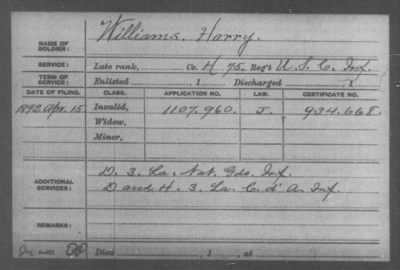 NAME OF SOLDIER: Williams, Harry.
SERVICE: Late rank, Co. H 75. Reg't U.S.C. Inf.
TERM OF SERVICE: Enlisted 1 Discharged 1
DATE OF FILING. CLASS. APPLICATION NO. LAW. CERTIFICATE NO.
1892 Apr. 15 Invalid, 1107.960. J. 934.668.
Widow,
Minor,
ADDITIONAL SERVICES: D. 3. La. Nat. Gds. Inf.
D and H. 3. La. C. d' A. Inf.
REMARKS:
Died , 1 , at